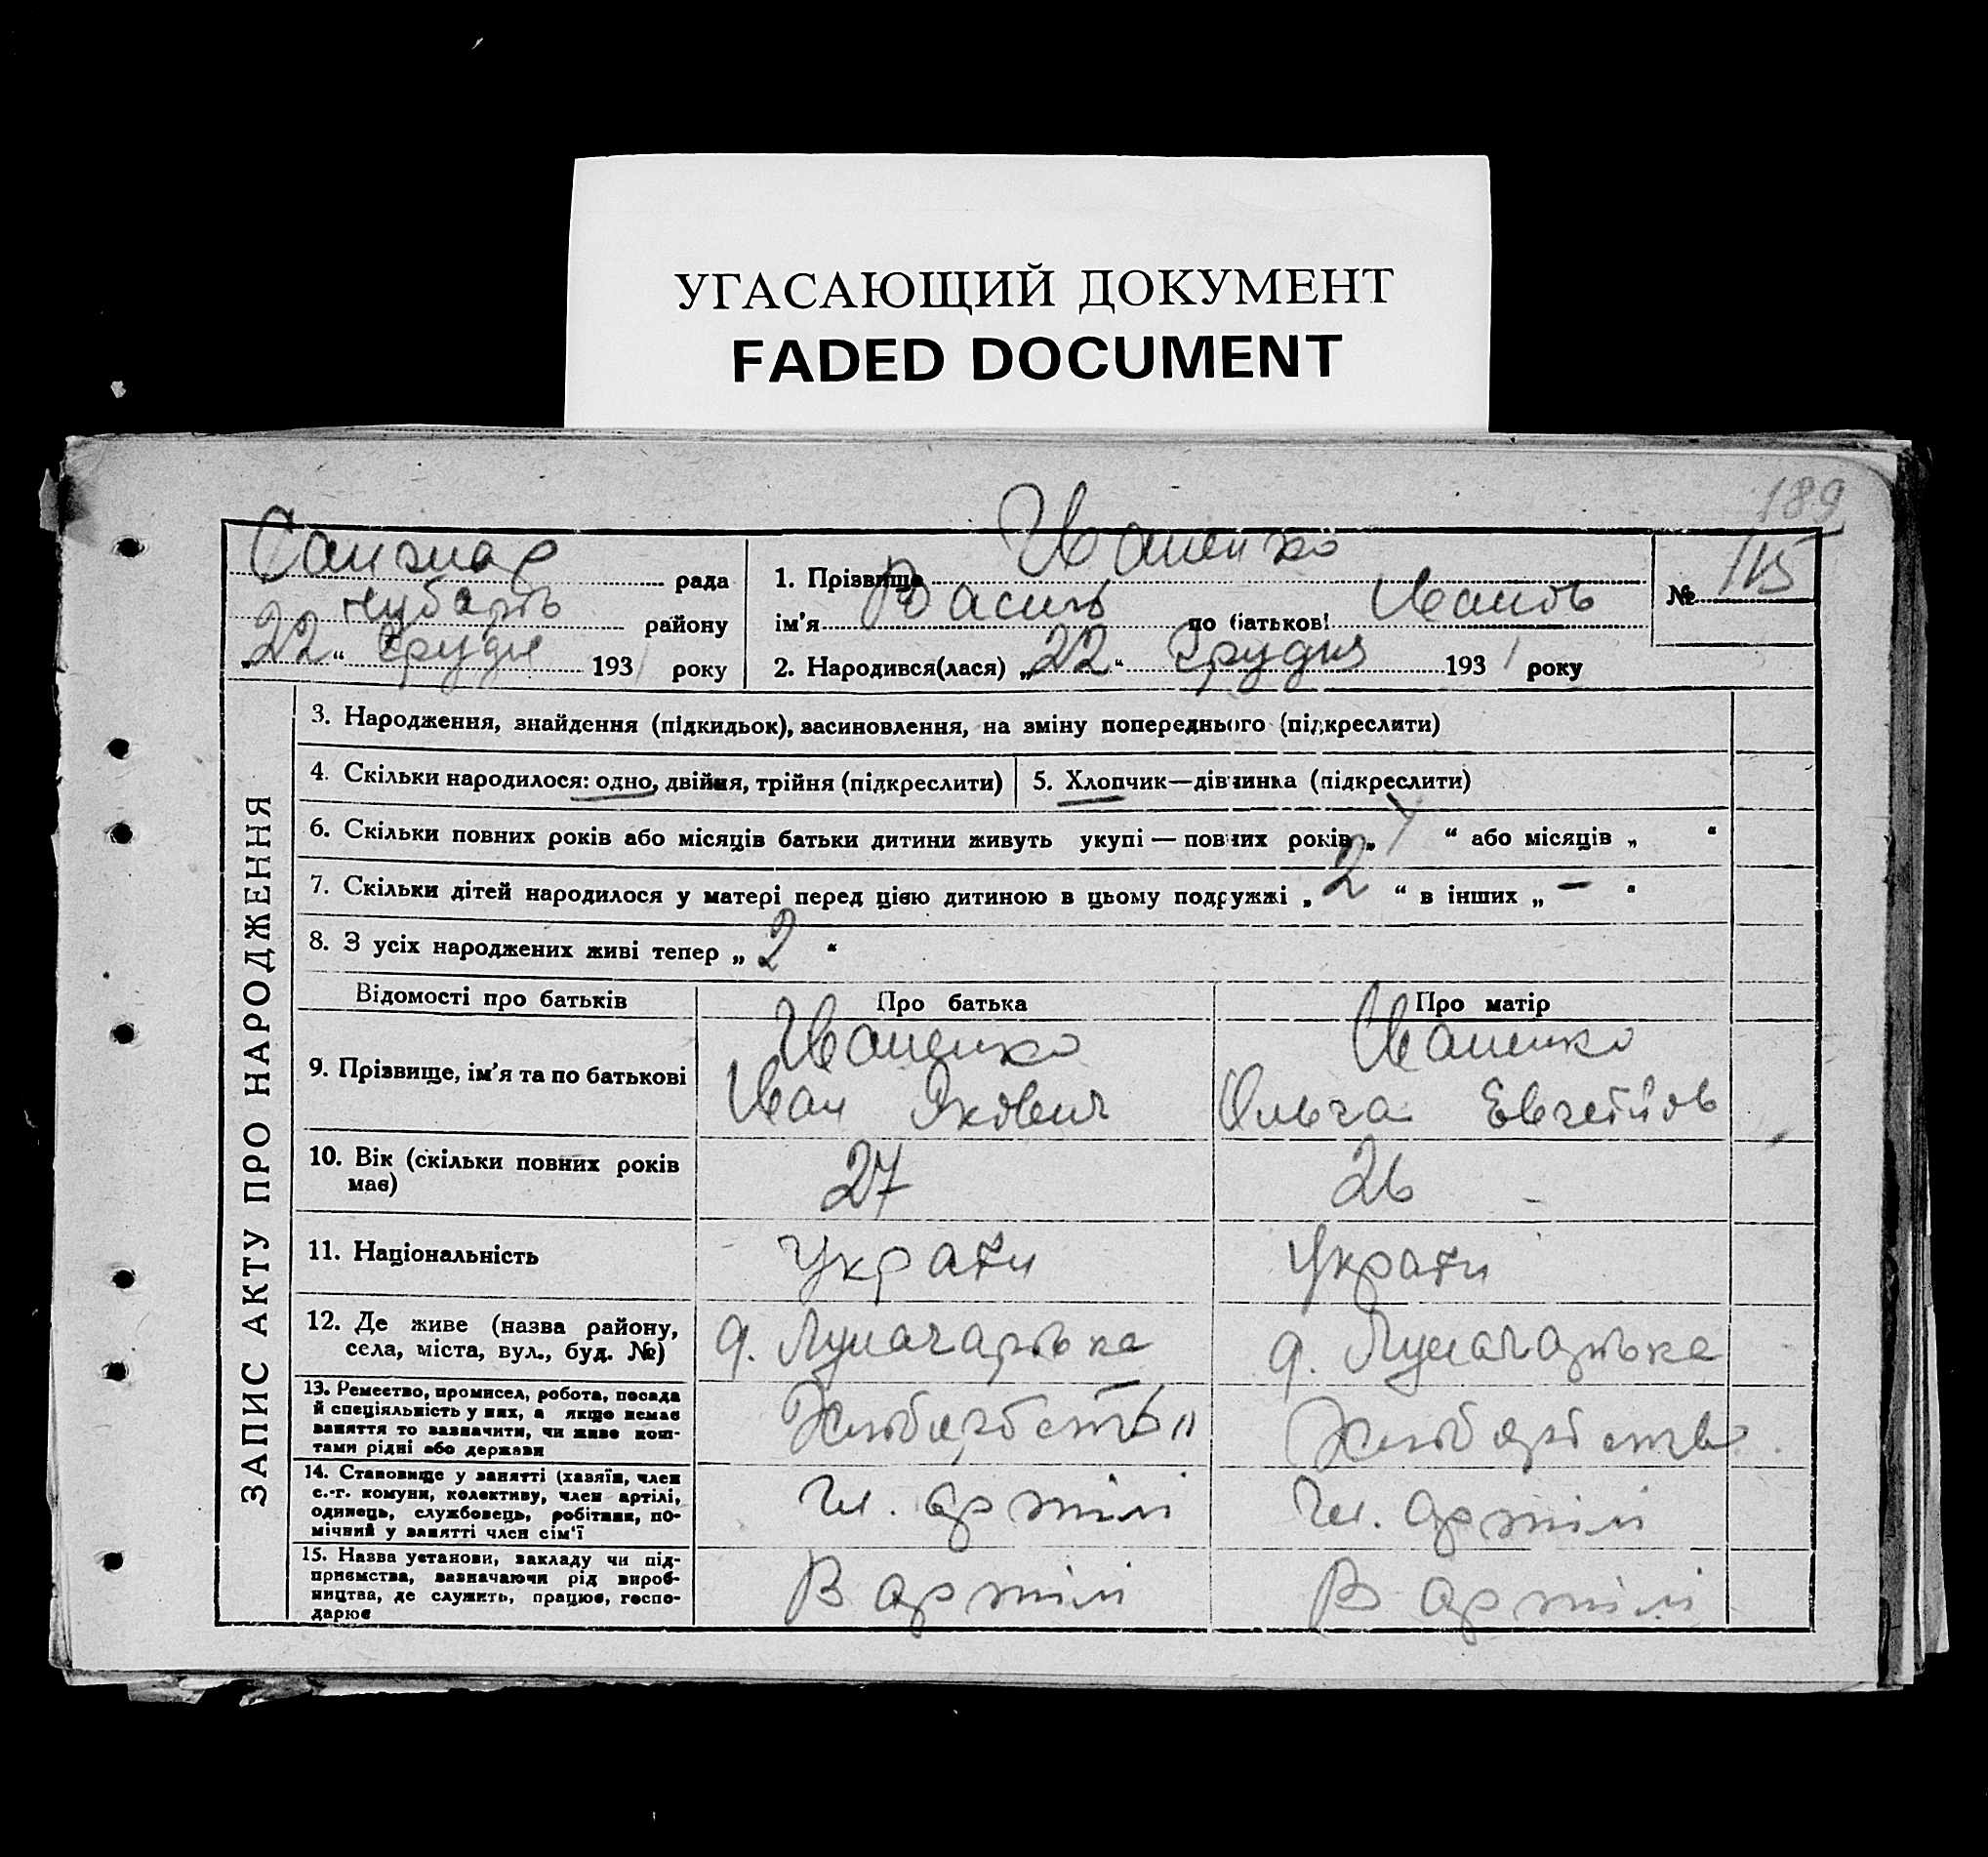 УГАСАЮЩИЙ ДОКУМЕНТ
FADED DOCUMENT
189
ЗАПИС АКТУ ПРО НАРОДЖЕННЯ
рада
Чубарів району
„22“ Грудня 1931 року
1. Прізвище Иваненко
ім'я Василь по батькові Иванов
2. Народився(лася) „22“ Грудня 1931 року
№ 115
3. Народження, знайдення (підкидьок), засиновлення, на зміну попереднього (підкреслити)
4. Скільки народилося: одно, двійня, трійня (підкреслити)
5. Хлопчик—дівчинка (підкреслити)
6. Скільки повних років або місяців батьки дитини живуть укупі — повних років „ “ або місяців „ “
7. Скільки дітей народилося у матері перед цією дитиною в цьому подружжі „2“ в інших „—“
8. З усіх народжених живі тепер „2“
Відомості про батьків Про батька Про матір
9. Прізвище, ім'я та по батькові
Иваненко
Иван Якович
Иваненко
Ольга
10. Вік (скільки повних років має)
27
26
11. Національність
Україн
Україн
12. Де живе (назва району,
села, міста, вул., буд. №)
Луначарівка
Луначарівка
13. Ремество, промисел, робота, посада
й спеціяльність у них, а якщо немає
заняття то зазначити, чи живе кош-
тами рідні або держави
14. Становище у занятті (хазяїн, член
с.-г. комуни, колективу, член артілі,
одинець, службовець, робітник, по-
мічний у занятті член сім'ї
Чл. артілі
Чл. артілі
15. Назва установи, закладу чи під-
приємства, зазначаючи рід вироб-
ництва, де служить, працює, госпо-
дарює
В артілі
В артілі